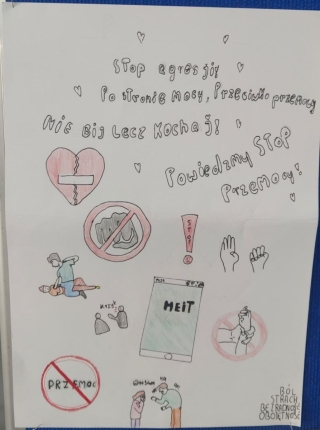 STOP agresji!
Po stronie mocy, Przeciwko przemocy
Nie Bij Lecz Kochaj!
Powiedzmy STOP
Przemocy!
STOP
HEJT
PRZEMOC
BÓL
STRACH
BEZRADNOŚĆ
OBOJĘTNOŚĆ